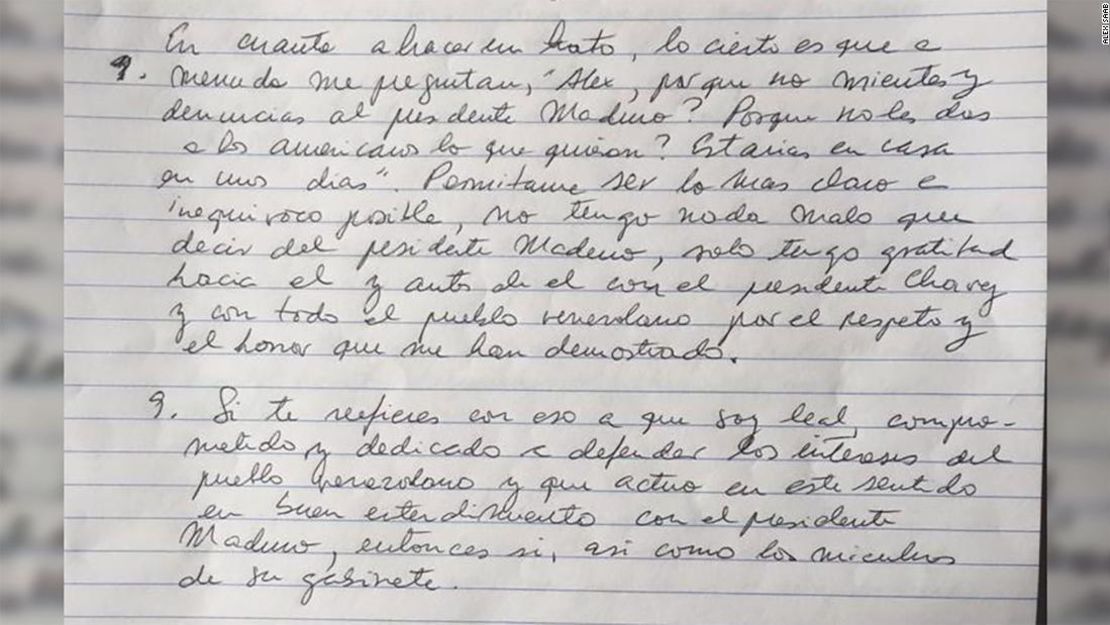 En cuanto a hacer un trato, lo cierto es que a
9. menudo me preguntan, "Alex, porque no mientes y
denuncias al presidente Maduro? Porque no les das
a los americanos lo que quieren? Estarias en casa
en unos dias". Permitame ser lo mas claro e
inequivoco posible, no tengo nada malo que
decir del presidente Maduro, solo tengo gratitud
hacia el y antes de el con el presidente Chavez
y con todo el pueblo venezolano por el respeto y
el honor que me han demostrado.
9. Si te refieres con eso a que soy leal, compro-
metido y dedicado a defender los intereses del
pueblo venezolano y que actuo en este sentido
en buen entendimiento con el presidente
Maduro, entonces si, asi como los miembros
de su gabinete.
ALEX SAAB